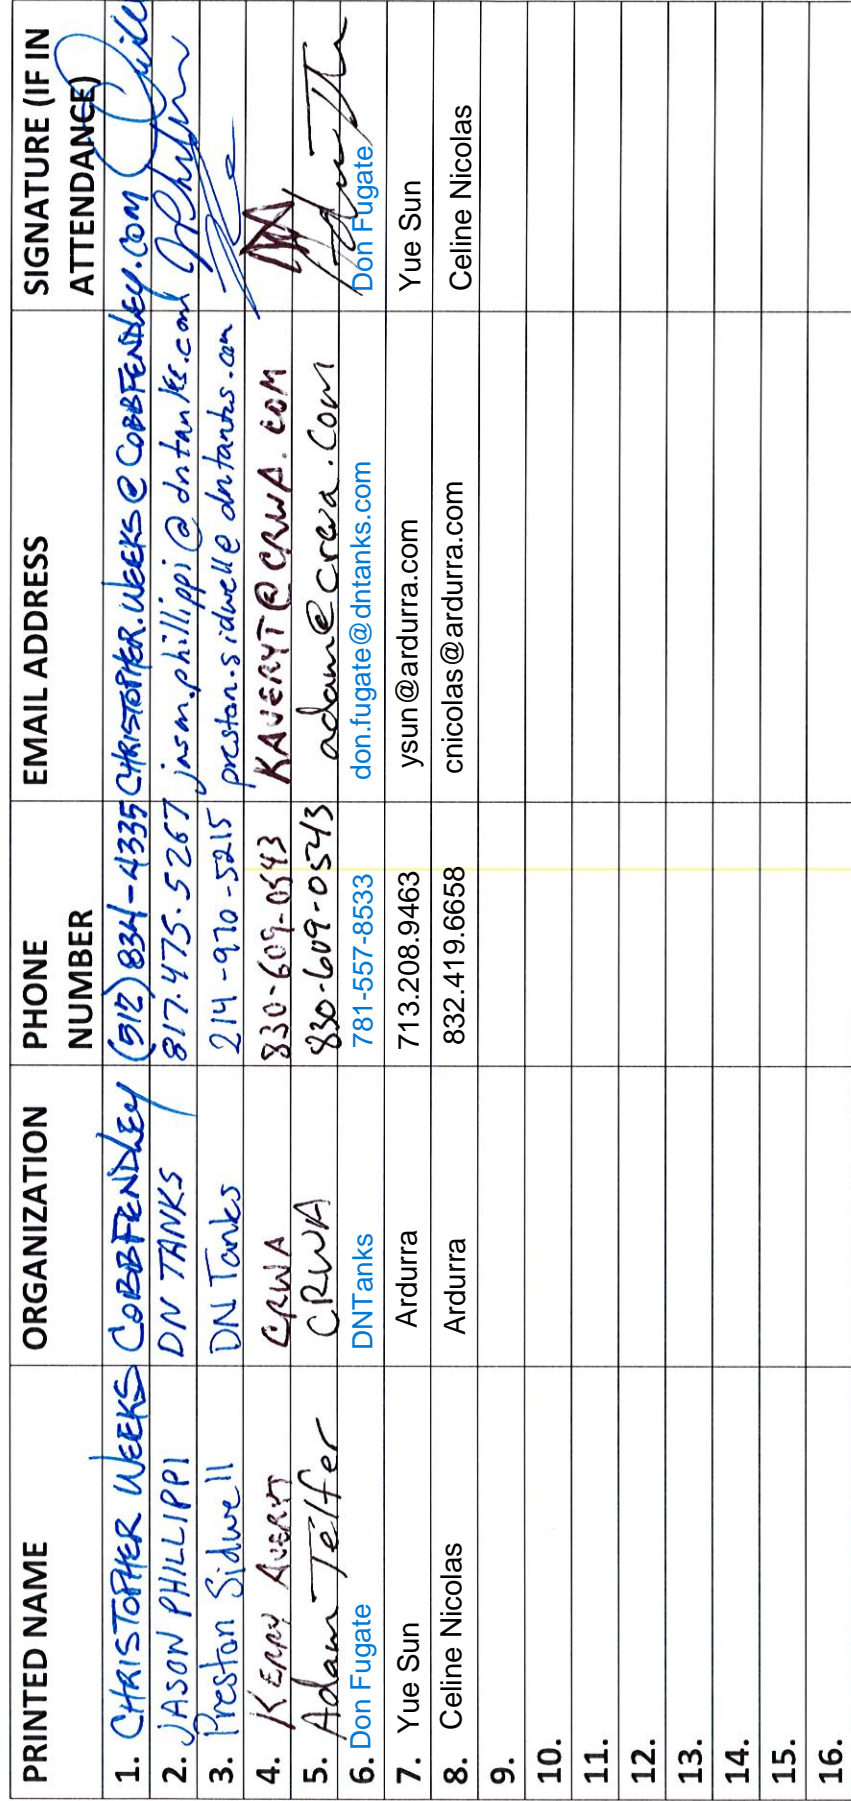 PRINTED NAME ORGANIZATION PHONE NUMBER EMAIL ADDRESS SIGNATURE (IF IN ATTENDANCE)
1. CHRISTOPHER WEEKS COBBFENDLEY (512) 834-4335 CHRISTOPHER.WEEKS@COBBFENDLEY.COM
2. JASON PHILLIPPI DN TANKS 817.475.5267 jason.phillippi@dntanks.com
3. Preston Sidwell DN Tanks 214-970-5215 preston.sidwell@dntanks.com
4. KERRY AVERYT CRWA 830-609-0543 KAVERYT@CRWA.COM
5. Adam Telfer CRWA 830-609-0543 adam@crwa.com
6. Don Fugate DNTanks 781-557-8533 don.fugate@dntanks.com Don Fugate
7. Yue Sun Ardurra 713.208.9463 ysun@ardurra.com Yue Sun
8. Celine Nicolas Ardurra 832.419.6658 cnicolas@ardurra.com Celine Nicolas
9.
10.
11.
12.
13.
14.
15.
16.